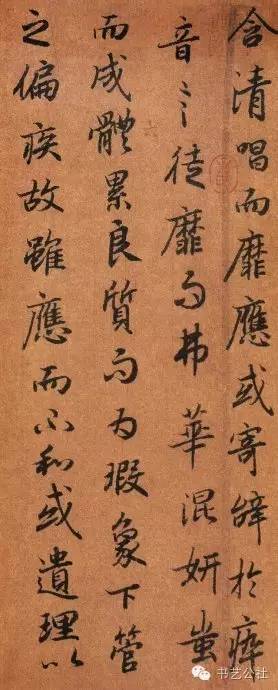 含清唱而靡應或寄辭於瘁
音言徒靡而弗華混妍蚩
而成體累良質而為瑕象下管
之偏疾故雖應而不和或遺理以
六
书艺公社